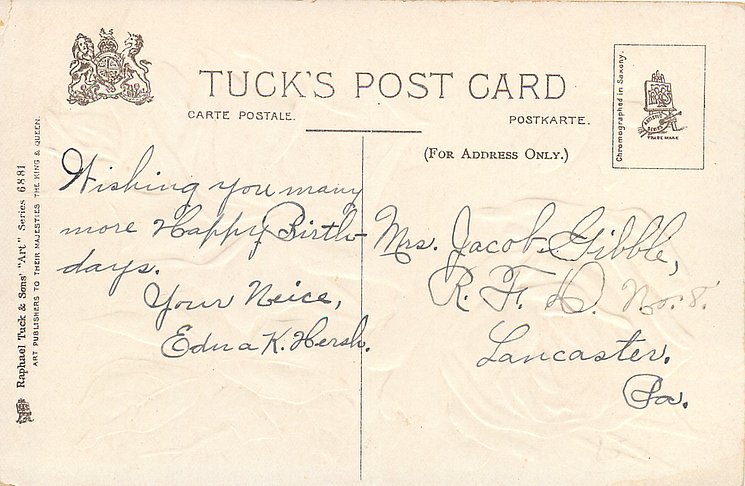 TUCK'S POST CARD
CARTE POSTALE.
POSTKARTE.
(FOR ADDRESS ONLY.)
Chromographed in Saxony.
TRADE MARK
Raphael Tuck & Sons' "Art" Series 6881
ART PUBLISHERS TO THEIR MAJESTIES THE KING & QUEEN.
Wishing you many
more Happy Birth-
days.
Your Neice,
Edna K. Hersh.
Mrs. Jacob Gibble,
R. F. D. No. 8.
Lancaster.
Pa.